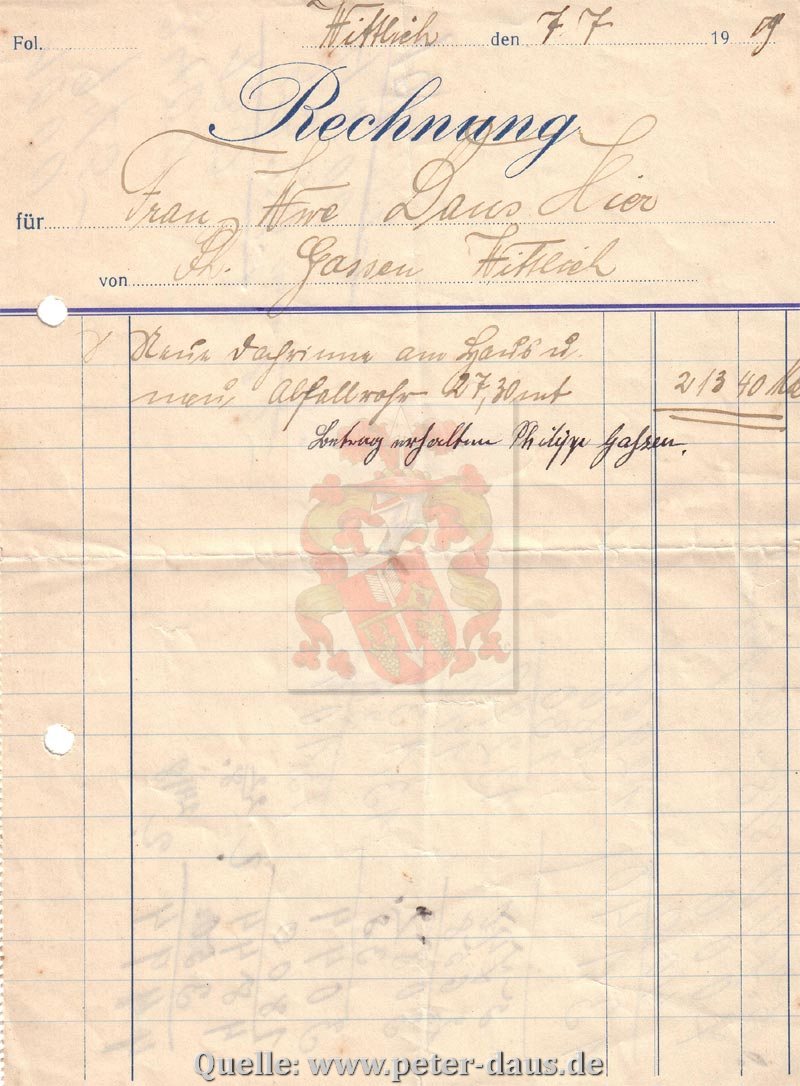 Fol. Wittlich den 7. 7 1909
Rechnung
für Frau Wwe Daus Hier
von Ph. Gassen Wittlich
Neue Dachrinne am Haus u.
neu Abfallrohr 27,30 mt 213 40 Mk
Betrag erhalten Philipp Gassen.
Quelle: www.peter-daus.de